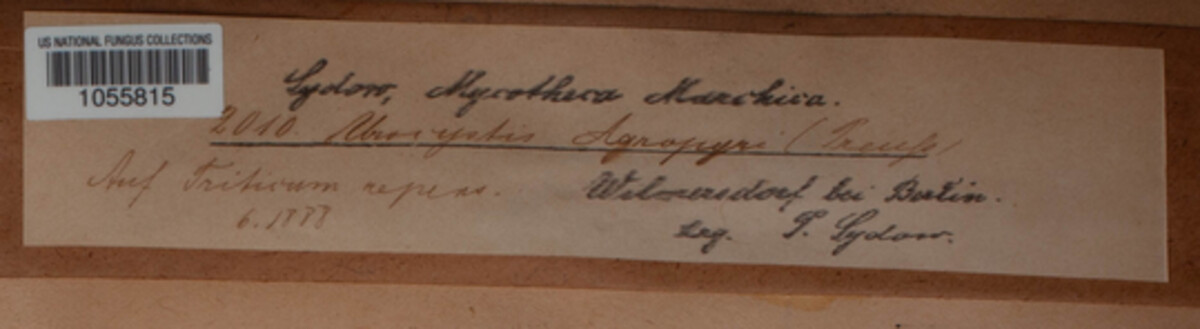 US NATIONAL FUNGUS COLLECTIONS
1055815
Sydow, Mycotheca Marchica.
2010. Urocystis Agropyri (Preuß)
Auf Triticum repens.
6.1888
Wilmersdorf bei Berlin.
Leg. P. Sydow.